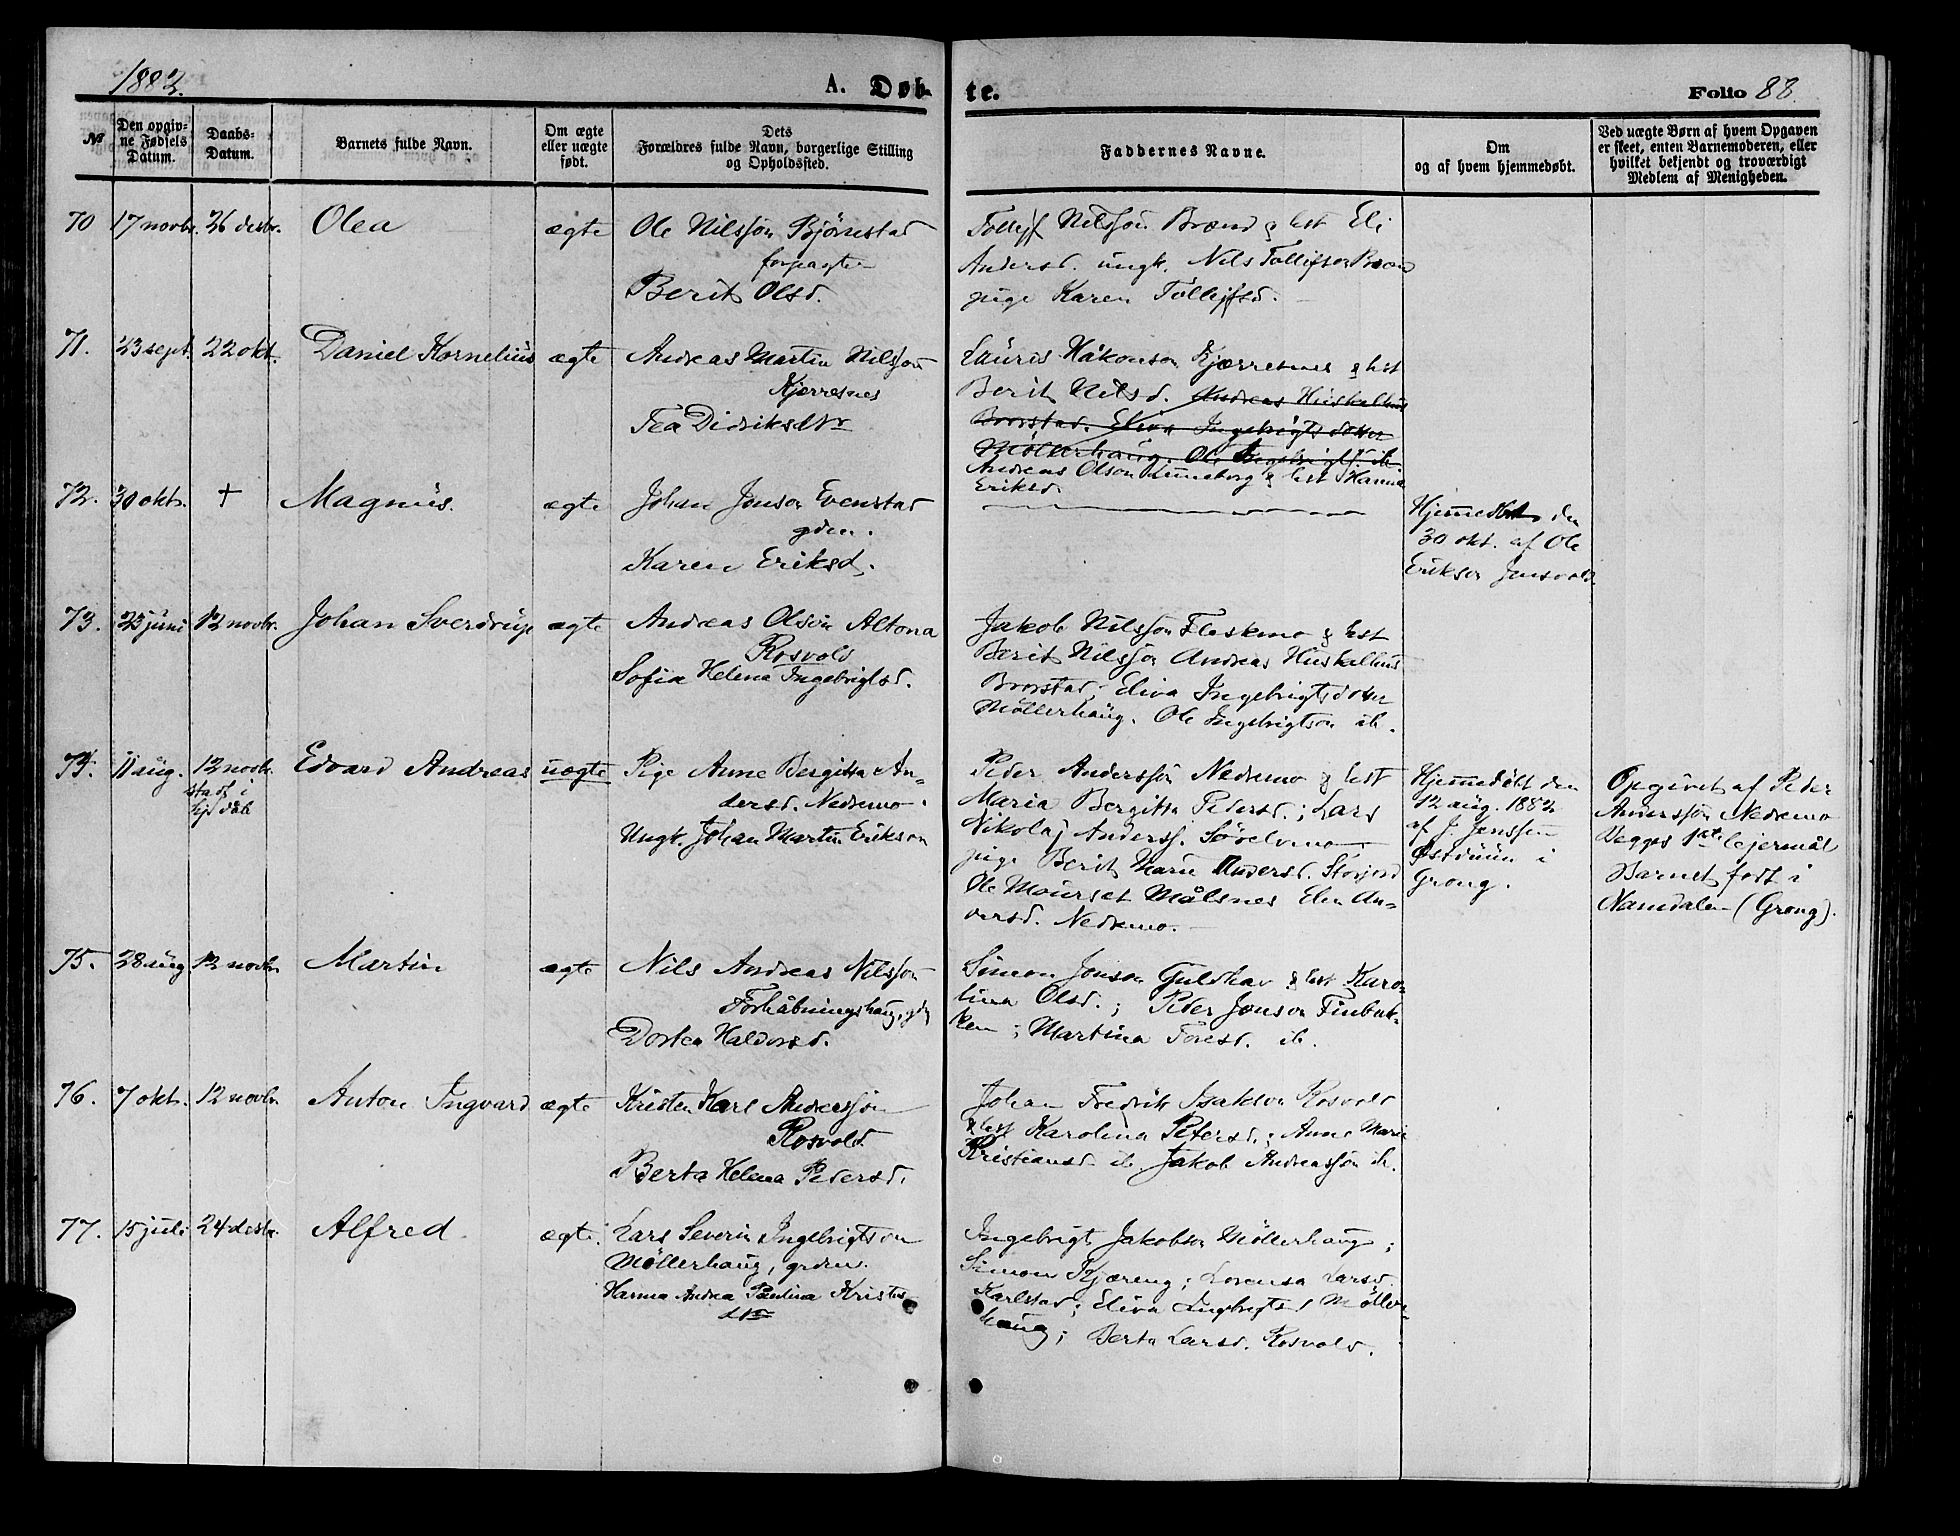 1882.
A. Døb-
te.
Folio 88.
№
Den opgiv-
ne Fødsels
Datum.
Daabs-
Datum.
Barnets fulde Navn.
Om ægte
eller uægte
født.
Dets
Forældres fulde Navn, borgerlige Stilling
og Opholdssted.
Faddernes Navne.
Om
og af hvem hjemmedøbt.
Ved uægte Børn af hvem Opgaven
er skeet, enten Barnemoderen, eller
hvilket bekjendt og troværdigt
Medlem af Menigheden.
70 17 novbr. 26 desbr. Olea ægte
Ole Nilssøn Bjørnstad
forpagter
Berit Olsd.
Tollejf Nilssøn Brænd & hst Eli
Andersd. ungk. Nils Tollifson
pige Karen Tollejfsd.
71. 23 sept. 22 okt. Daniel Kornelius ægte
Andreas Martin Nilssøn
Kjerresnes
Tea Didriksdtr
Lauris Håkonson Kjærresnes & hst
Berit Nilsd. Andreas Huskelhus
Brorstad. Eliva Ingebrigtsdotter
Møllerhaug. Ole Ingebrigts. ib.
Andreas Olson Lunneborg & hst Hanna
Eriksd.
72. 30 okt. + Magnus. ægte
Johan Jonson Evenstad
gdm.
Karen Eriksd.
Hjemmedøbt den
30 okt. af Ole
Erikson Jonsvold
73. 23 juni 12 novbr. Johan Sverdrup ægte
Andreas Olson Altona
Rosvold
Sofia Helena Ingebrigtsd.
Jakob Nilssøn Fleskmo & hst
Berit Nilssøn Andreas Huskelhus
Brorstad, Eliva Ingebrigtsdotter
Møllerhaug. Ole Ingebrigtson ib.
74. 11 aug. 12 novbr. Edvard Andreas uægte
stadf. i
hjd dåb
Pige Anne Bergitta An-
dersd. Nedremo.
Ungk. Johan Martin Erikson
Peder Anderssøn Nedremo & hst
Maria Bergitta Pedersd.; Lars
Nikolaj Anderss. Sørelvmo
pige Berit Marie Andersd. Storjord
Ole Mourset Målsnes Elen An-
dersd. Nedremo.
Hjemmedøbt den
12 aug. 1882
af J. Jenssen
i
Grong.
Opgivet af Peder
Anderssøn Nedremo
Begges 1ste lejermål
Barnet født i
Namdalen (Grong).
75. 28 aug 12 novbr. Martin ægte
Nils Andreas Nilssøn
Forhåbningshaug, gdm
Dortea Haldorsd.
Simon Jonson Guldhav & hst Karo-
lina Olsd.; Peder Jonson Finbak-
ken; Martina Toresd. ib.
76. 7 okt. 12 novbr. Anton Ingvard ægte
Kristen Karl Anderssøn
Rosvold
Berta Helena Pedersd.
Johan Fredrik Isakson Rosvold
& hst Karolina Petersd.; Anne Marie
Kristiansd. ib Jakob Andreassøn ib.
77. 15 juli 24 desbr. Alfred ægte.
Lars Severin Ingebrigtson
Møllerhaug, grdm.
Hanna Andrea Paulina Kristens
dtr
Ingebrigt Jakobson Møllerhaug;
Simon Kjæreng; Lorensa Larsd.
Karlstad; Eliva Ingebrigtsd Møller-
haug; Berta Larsd. Rosvold.